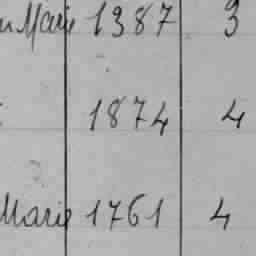 Marie 1387 3
1874 4
Marie 1761 4